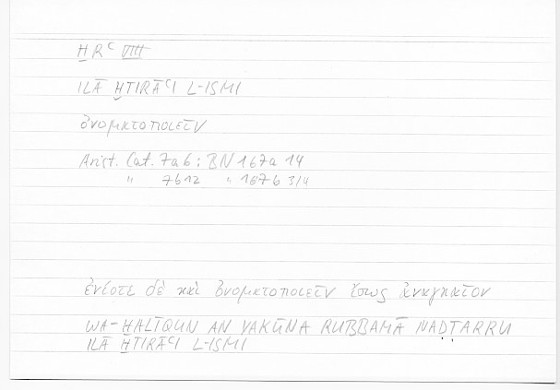 ḪRꜤ VIII
ILĀ ḪTIRĀꜤI L-ISMI
ὀνοματοποιεῖν
Arist. Cat. 7a6: BN 167a 14
" 7b12 " 167b 3/4
ἐνίοτε δὲ καὶ ὀνοματοποιεῖν ἴσως ἀναγκαῖον
WA-ḪALĪQUN AN YAKŪNA RUBBAMĀ NAḌṬARRU
ILĀ ḪTIRĀꜤI L-ISMI